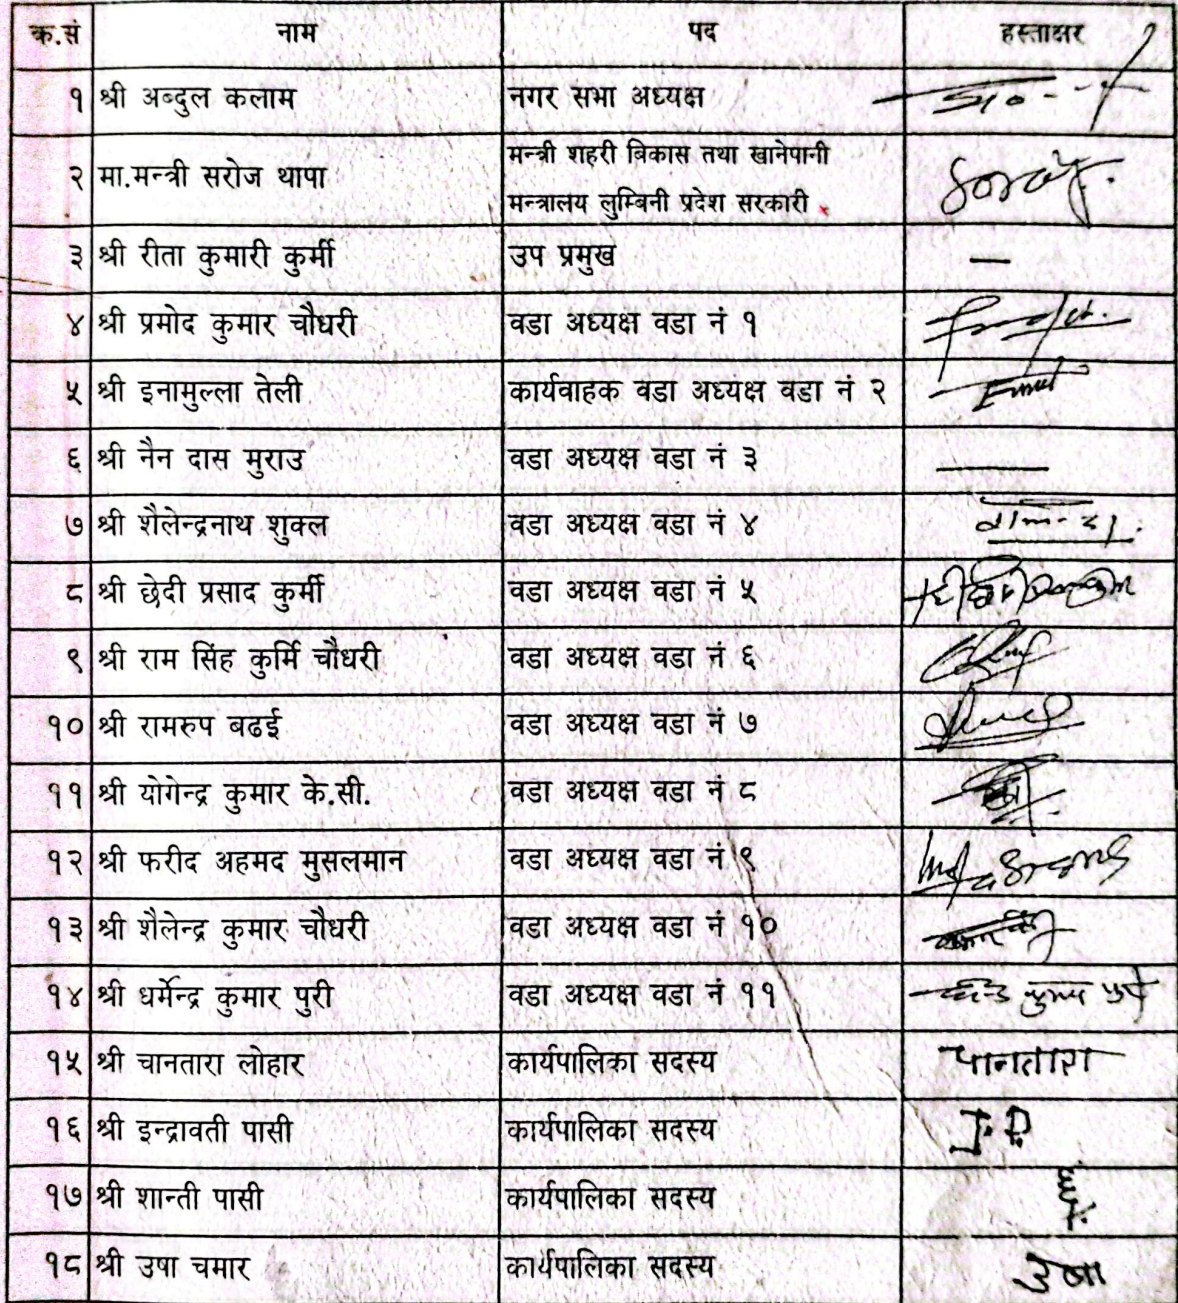 क.सं नाम पद हस्ताक्षर
१ श्री अब्दुल कलाम नगर सभा अध्यक्ष
२ मा.मन्त्री सरोज थापा मन्त्री शहरी बिकास तथा खानेपानी
मन्त्रालय लुम्बिनी प्रदेश सरकारी
३ श्री रीता कुमारी कुर्मी उप प्रमुख —
४ श्री प्रमोद कुमार चौधरी वडा अध्यक्ष वडा नं १
५ श्री इनामुल्ला तेली कार्यवाहक वडा अध्यक्ष वडा नं २
६ श्री नैन दास मुराउ वडा अध्यक्ष वडा नं ३ —
७ श्री शैलेन्द्रनाथ शुक्ल वडा अध्यक्ष वडा नं ४
८ श्री छेदी प्रसाद कुर्मी वडा अध्यक्ष वडा नं ५
९ श्री राम सिंह कुर्मि चौधरी वडा अध्यक्ष वडा नं ६
१० श्री रामरुप बढई वडा अध्यक्ष वडा नं ७
११ श्री योगेन्द्र कुमार के.सी. वडा अध्यक्ष वडा नं ८
१२ श्री फरीद अहमद मुसलमान वडा अध्यक्ष वडा नं ९
१३ श्री शैलेन्द्र कुमार चौधरी वडा अध्यक्ष वडा नं १०
१४ श्री धर्मेन्द्र कुमार पुरी वडा अध्यक्ष वडा नं ११
१५ श्री चानतारा लोहार कार्यपालिका सदस्य चानतारा
१६ श्री इन्द्रावती पासी कार्यपालिका सदस्य
१७ श्री शान्ती पासी कार्यपालिका सदस्य
१८ श्री उषा चमार कार्यपालिका सदस्य उषा